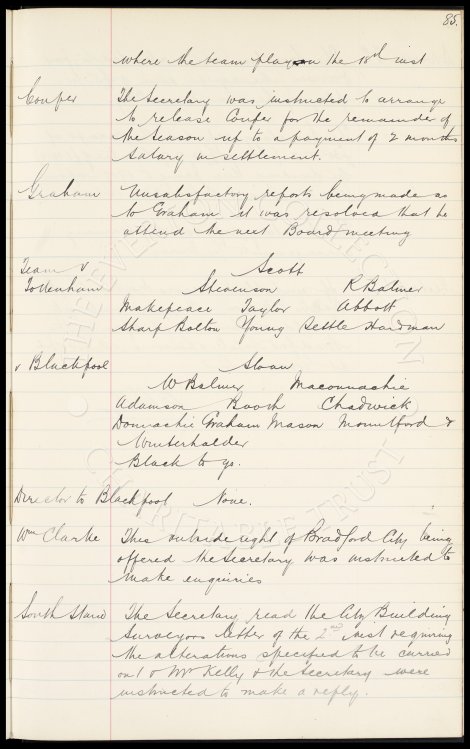 85.
where the team play on the 18th inst
Couper The Secretary was instructed to arrange
to release Couper for the remainder of
the season up to a payment of 2 months
salary in settlement.
Graham Unsatisfactory reports being made as
to Graham it was resolved that he
attend the next Board meeting
Team v Scott
Tottenham Stevenson R Balmer
Makepeace Taylor Abbott
Sharp Bolton Young Settle Hardman
v Blackpool Sloan
W Balmer Maconnachie
Adamson Booth Chadwick
Donnachie Graham Mason Mountford &
Winterhalder
Black to go.
Director to Blackpool None.
Wm Clarke This outside right of Bradford City being
offered the Secretary was instructed to
make enquiries
South Stand The Secretary read the City Building
Surveyors letter of the 2nd inst requiring
the alterations specified to be carried
out & Mr Kelly & the Secretary were
instructed to make a reply.
THE EVERTON COLLECTION
CHARITABLE TRUST